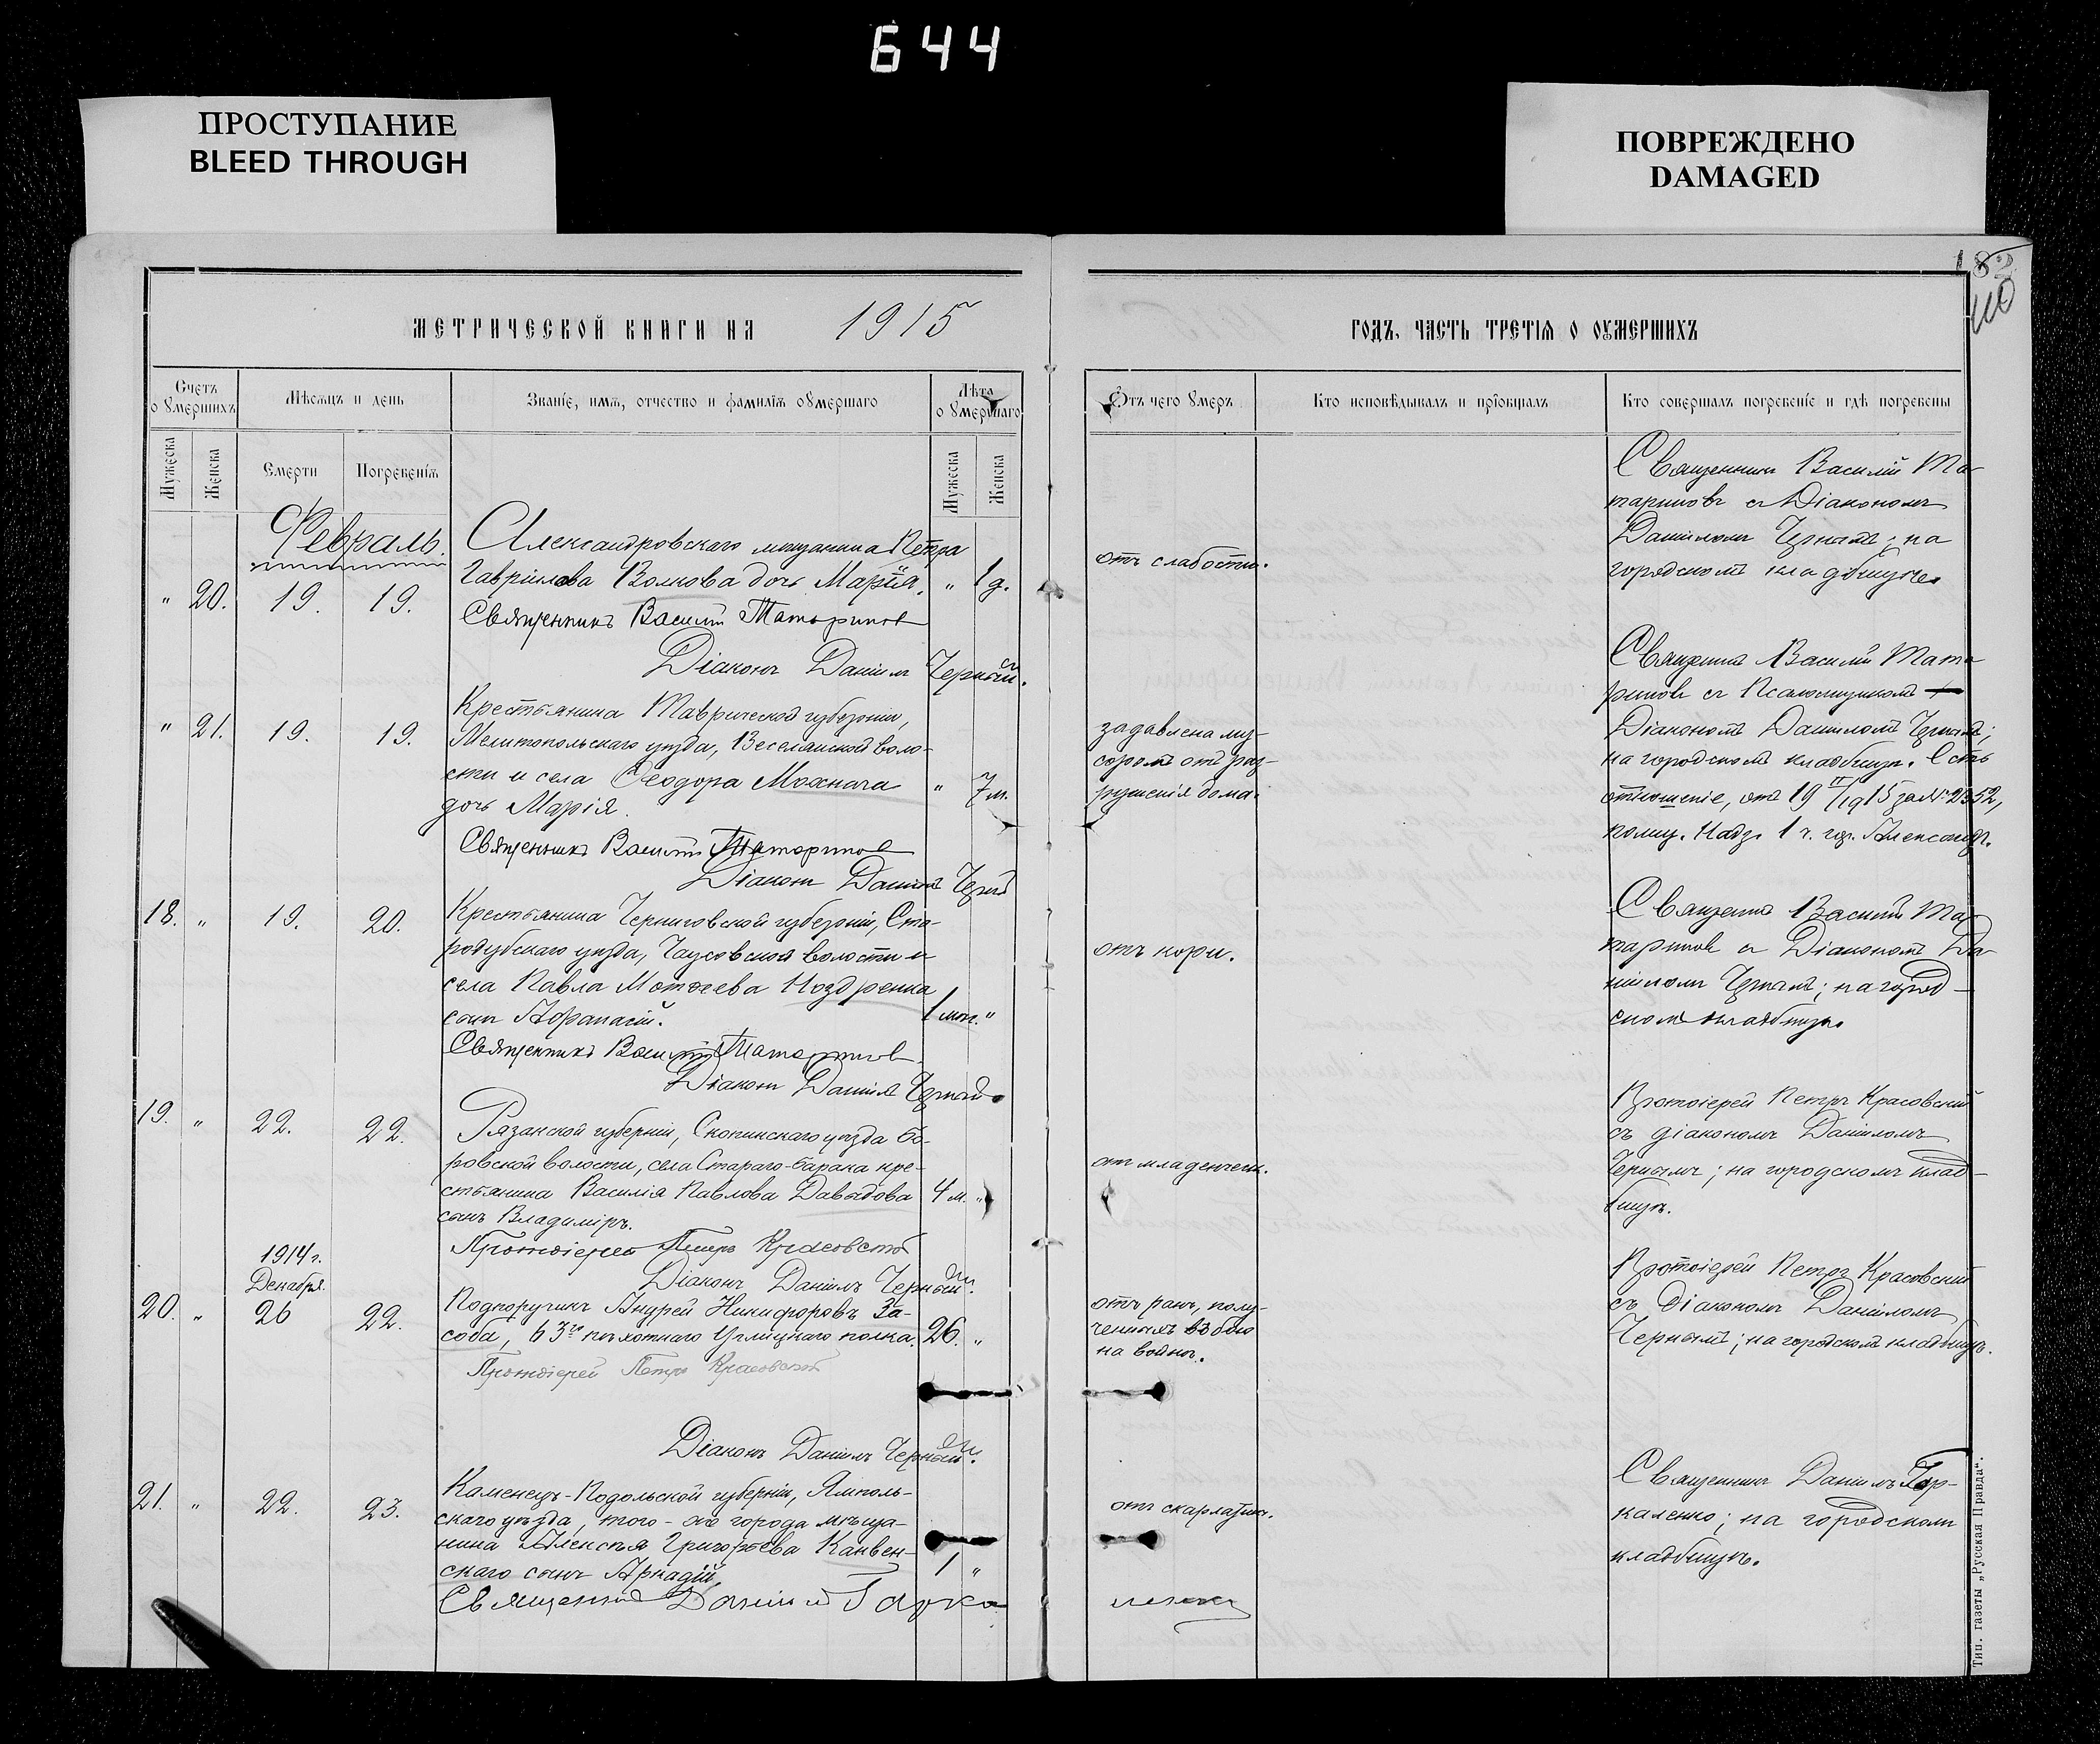 644
ПРОСТУПАНИЕ
BLEED THROUGH
ПОВРЕЖДЕНО
DAMAGED
182
110
МЕТРИЧЕСКОЙ КНИГИ НА 1915
ГОДЪ, ЧАСТЬ ТРЕТІЯ О ОУМЕРШИХЪ
Счетъ о умершихъ
Мѣсяцъ и день
Званіе, имя, отчество и фамилія оумершаго
Лѣта о умершаго
Отъ чего умеръ
Кто исповѣдывалъ и пріобщалъ
Кто совершалъ погребеніе и гдѣ погребены
Мужеска
Женска
Смерти
Погребенія
Мужеска
Женска
Февраль.
" 20. 19. 19.
Александровскаго мѣщанина Петра
Гаврилова Волкова дочь Марія. " 1 д.
Священникъ Василій Татариновъ
Діаконъ Даніилъ Черный.
отъ слабости.
Священникъ Василій Та-
тариновъ съ Діакономъ
Даніиломъ Чернымъ; на
городскомъ кладбищѣ.
" 21. 19. 19.
Крестьянина Таврической губерніи,
Мелитопольскаго уѣзда, Веселянской воло-
сти и села Ѳеодора Махнача " 7 м.
дочь Марія.
Священникъ Василій Татариновъ
Діаконъ Даніилъ Черный
задавлена му-
соромъ отъ раз-
рушенія дома.
Священникъ Василій Тата-
риновъ съ Псаломщикомъ
Діакономъ Даніиломъ Чернымъ;
на городскомъ кладбищѣ. Есть
отношеніе, отъ 19 II/1915 за № 2352,
Надз. 1 ч. гор. Александр.
18. " 19. 20.
Крестьянина Черниговской губерніи, Ста-
родубскаго уѣзда, Чаусовской волости и
села Павла Матѳеева Ноздренка
сынъ Аѳанасій. 1 мѣс. "
Священникъ Василій Татариновъ
Діаконъ Даніилъ Черный.
отъ кори.
Священникъ Василій Та-
тариновъ съ Діакономъ Да-
ніиломъ Чернымъ; на город-
скомъ кладбищѣ.
19. " 22. 22.
Рязанской губерніи, Скопинскаго уѣзда Бо-
ровской волости, села Стараго-барака кре-
стьянина Василія Павлова Давыдова 4 м. "
сынъ Владиміръ.
Протоіерей Петръ Красовскій
Діаконъ Даніилъ Черный.
от младенческ.
Протоіерей Петръ Красовскій
съ діакономъ Даніиломъ
Чернымъ; на городскомъ клад-
бищѣ.
1914 г.
Декабря.
20. " 26 22.
Подпоручикъ Андрей Никифоровъ За-
соба, 63го пѣхотнаго Углицкаго полка. 26. "
Протоіерей Петръ Красовскій
Діаконъ Даніилъ Черный.
отъ ранъ, полу-
ченныхъ въ бою
на войнѣ.
Протоіерей Петръ Красовскій
съ Діакономъ Даніиломъ
Чернымъ; на городскомъ кладбищѣ.
21. " 22. 23.
Каменецъ-Подольской губерніи, Ямполь-
скаго уѣзда, того-же города мѣща-
нина Алексѣя Григорьева Канвен-
скаго сынъ Аркадій 1 "
Священникъ Даніилъ Гаркаленко
отъ скарлатин.
Священникъ Даніилъ Гар-
каленко; на городскомъ
кладбищѣ.
Тип. газеты „Русская Правда".